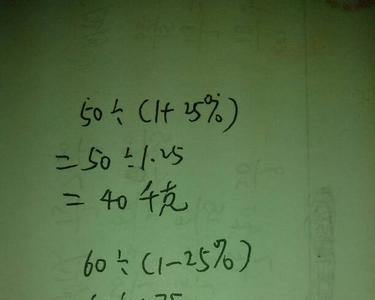 50÷(1+25%)
=50÷1.25
=40千克
60÷(1-25%)